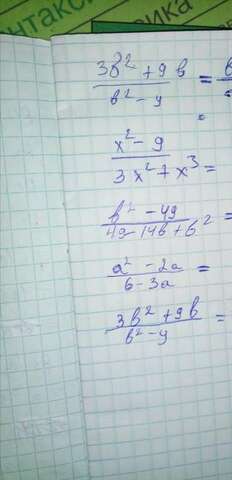 нтакси
(3в² + 9в)/(в² - y) = в
(x² - 9)/(3x² + x³) =
(в² - 49)/(49 - 14в + в²) =
(a² - 2a)/(6 - 3a) =
(3в² + 9в)/(в² - y) =